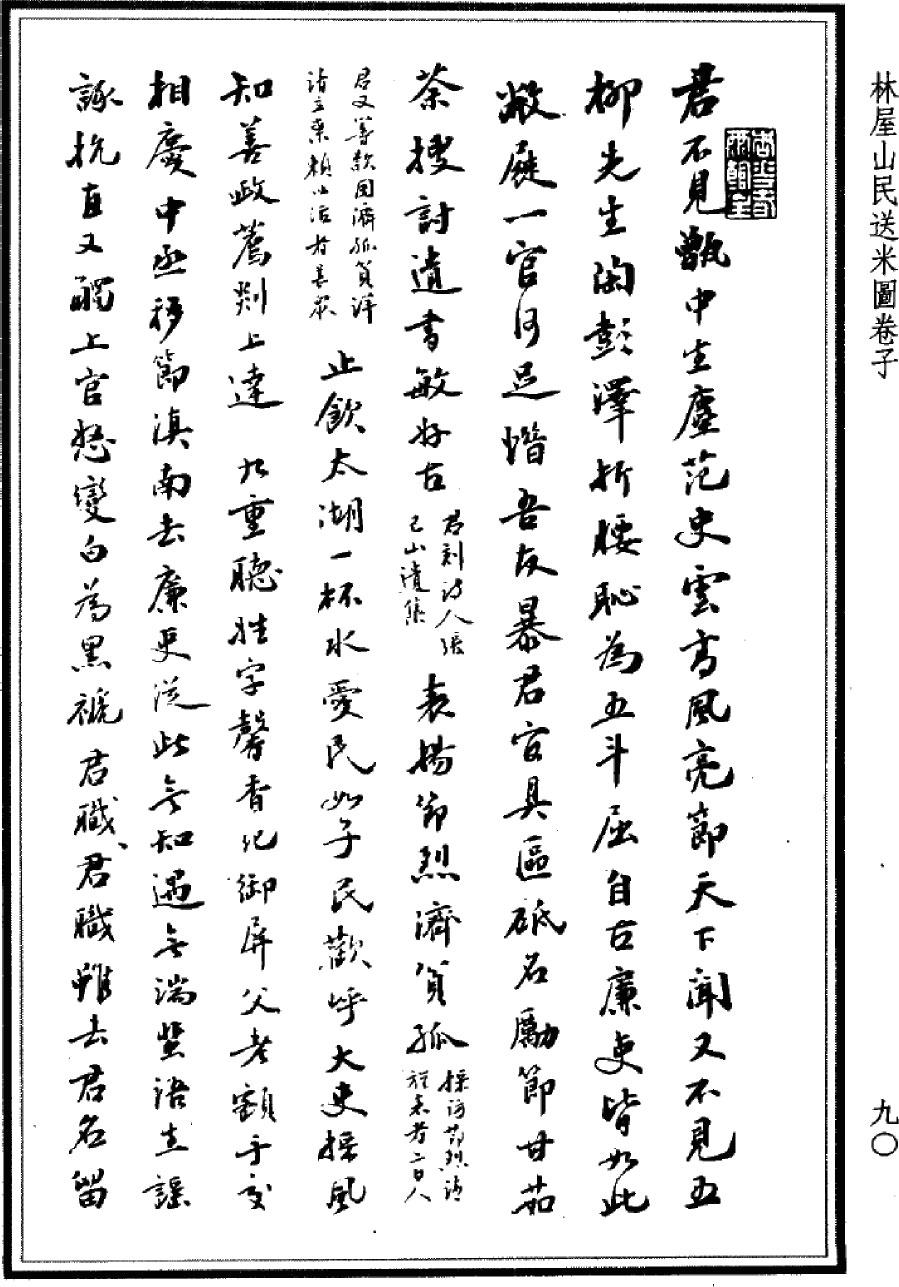 林屋山民送米圖卷子
九〇
君不見甑中生塵范史雲高風亮節天下聞又不見五
柳先生閑彭澤折腰恥為五斗屈自古廉吏皆如此
敝屣一官何足惜吾友暴君官具區砥名勵節甘茹
荼搜討遺書敏好古君刻詩人張已山遺集表揚節烈濟貧孤採訪節烈請旌表者二百人
君又籌款周濟孤貧詳請立案賴以活者甚眾止飲太湖一杯水愛民如子民歡呼大吏採風
知善政薦剡上達九重聽姓字馨香記御屏父老額手交
相慶中丞移節滇南去廉吏從此無知遇無端蜚語生謠
諑抗直又觸上官怒變白為黑褫君職君職雖去君名留